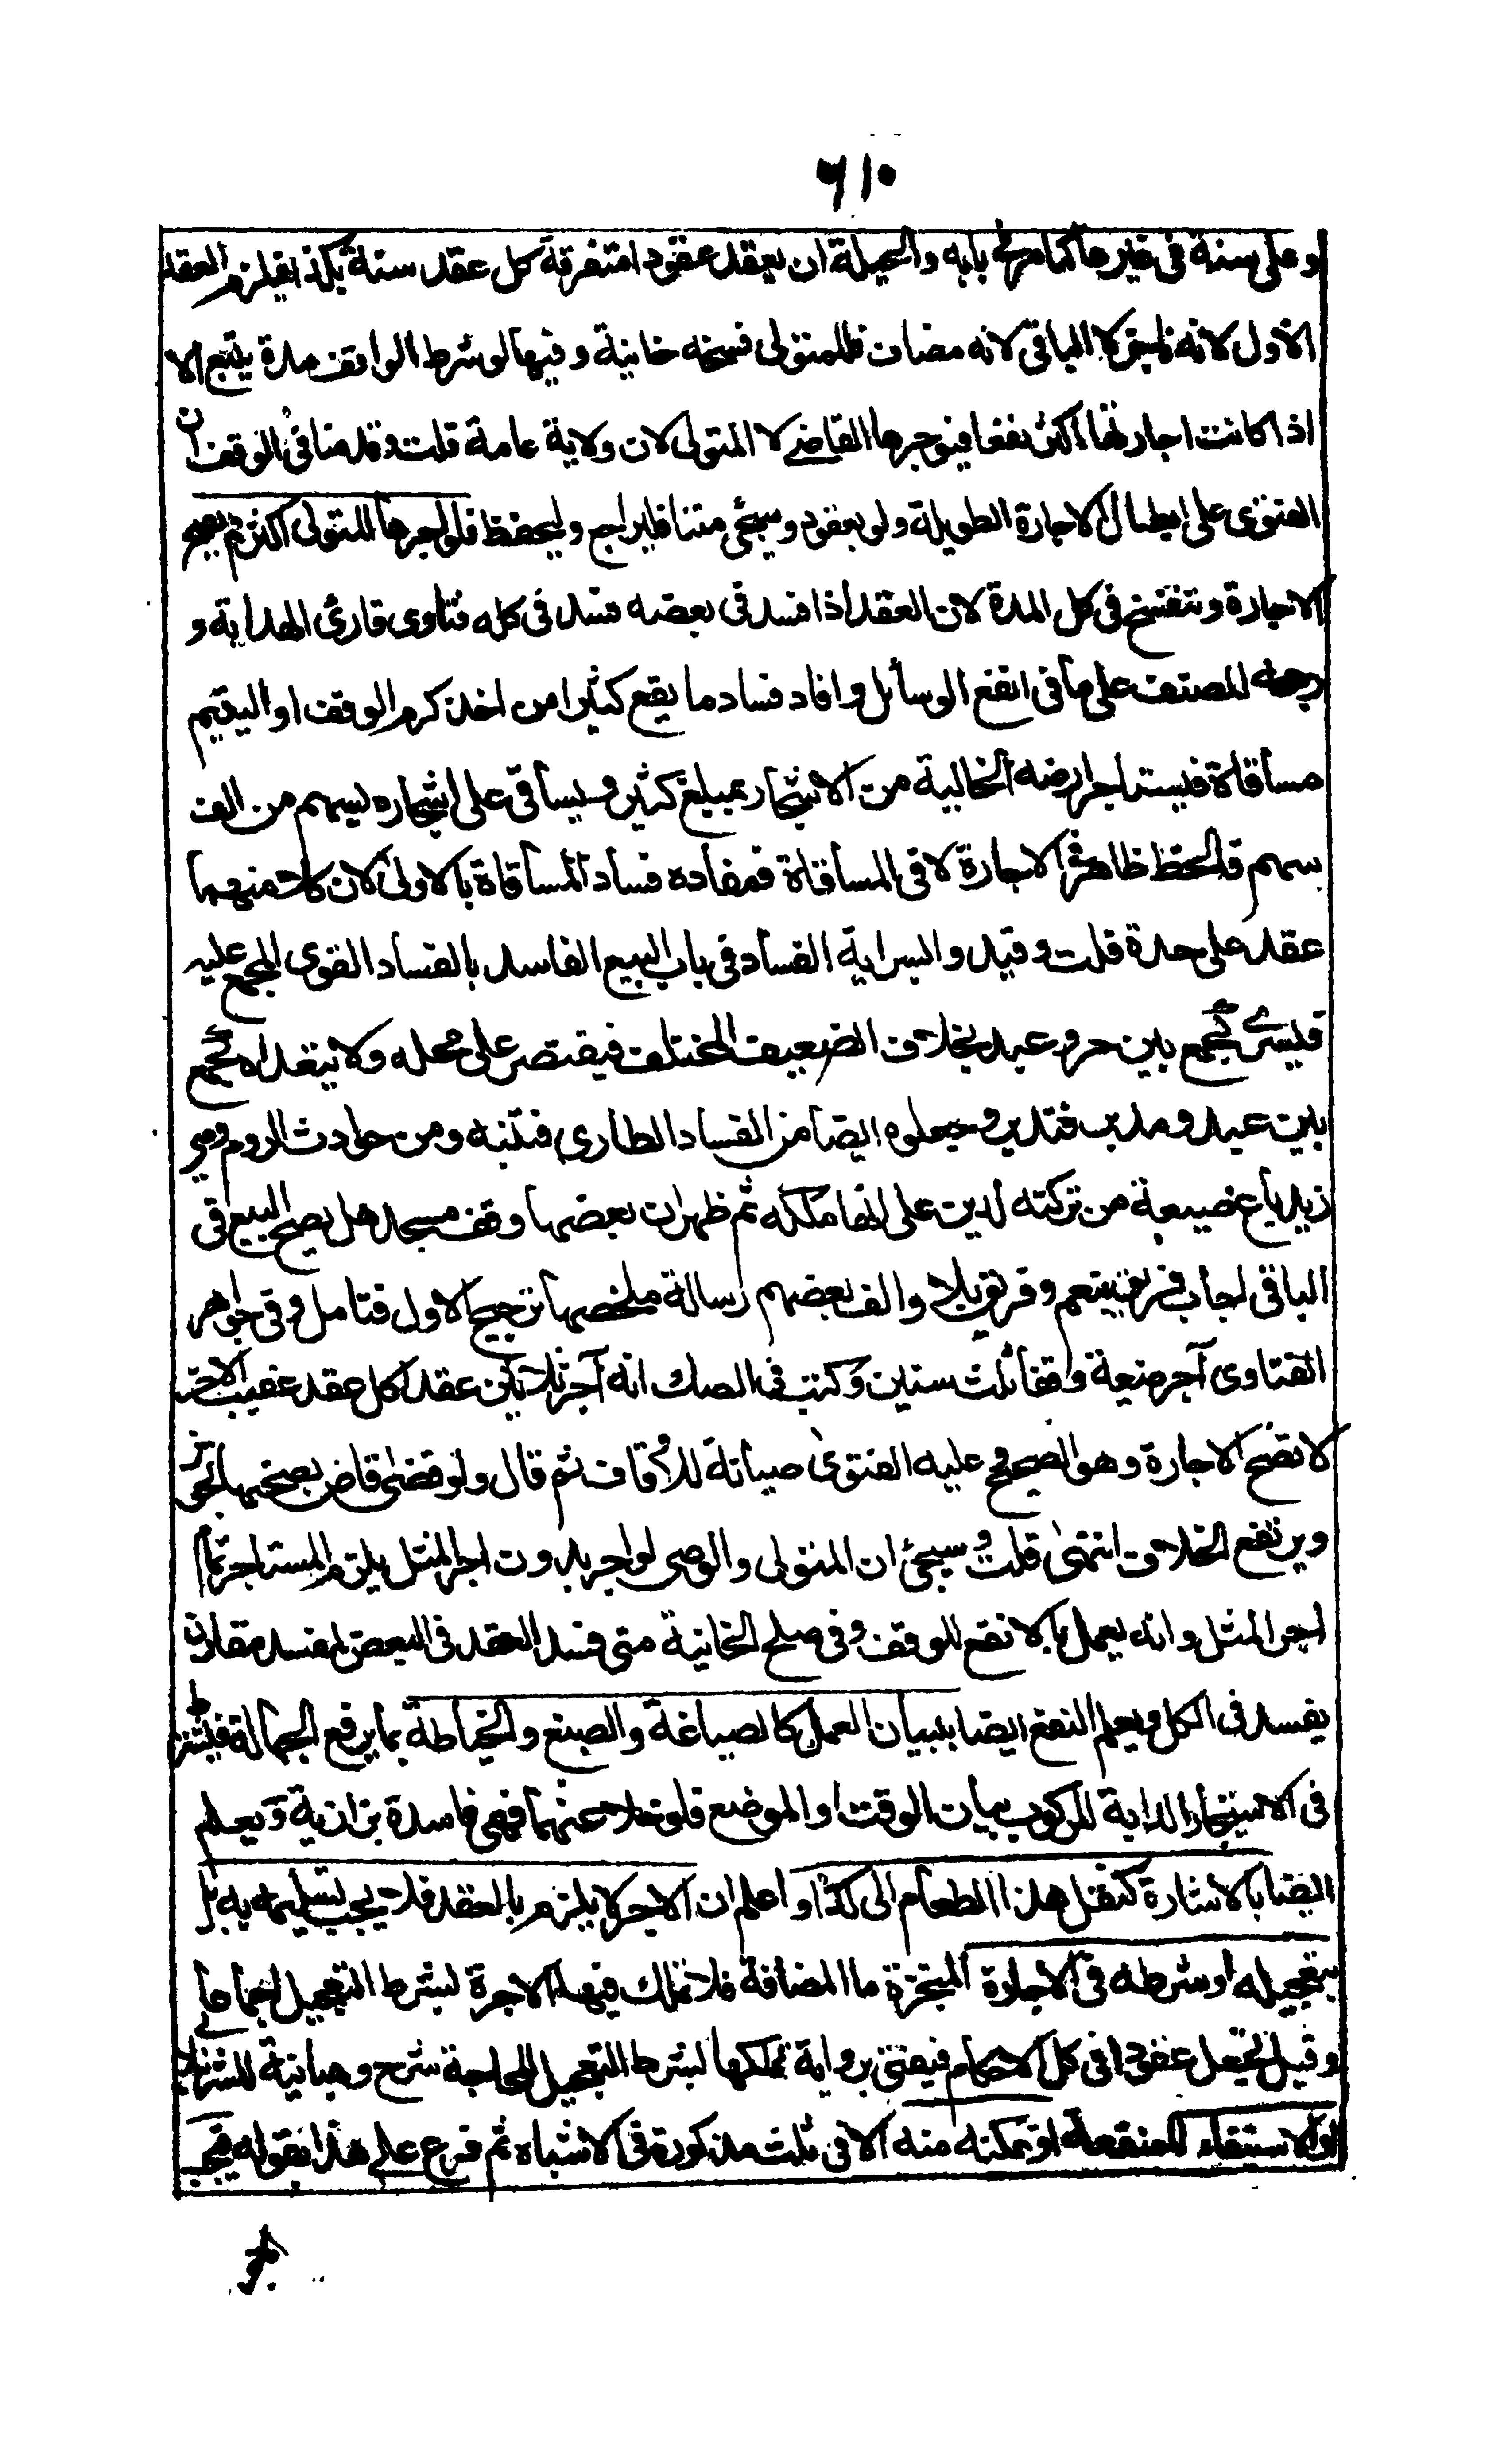 ٦١٠
وعلى سنة في غيرها كما مر في بابه والحيلة ان يعقد عقودا متفرقة كل عقد سنة بكذا فيلزم العقد
الاول لانه ناجز لا الباقي لانه مضاف فللمتولى فسخه خانية وفيها لو شرط الواقف مدة يتبع الا
اذا كانت اجارتها اكثر نفعا فيوجرها القاضي لا المتولى لان ولاية عامة قلت وقدمنا في الوقف ان
الفتوى على ابطال الاجارة الطويلة ولو بعقود وسيجئ متنا فليراجع وليحفظ فلو اجرها المتولى اكثر لم يصح
الاجارة وتنفسخ في كل المدة لان العقد اذا فسد في بعضه فسد في كله فتاوى قارئ الهداية و
رجحه المصنف على ما في انفع الوسائل وافاد فساد ما يقع كثيرا من اخذ كرم الوقف او اليتيم
مساقاة فيستاجر ارضه الخالية من الاشجار بمبلغ كثير ويساقى على اشجاره بسهم من الف
سهم فالحظ ظاهر في الاجارة لا في المساقاة فمفاده فساد المساقاة بالاولى لان كلا منهما
عقد على حدة قلت وقيدوا سراية الفساد في باب البيع الفاسد بالفساد القوى المجمع عليه
فيسرى كجمع بين حر وعبد بخلاف الضعيف المختلف فيقتصر على محله ولا يتعداه كجمع
بين عبد ومدبر فتدبر وجعلوه ايضا من الفساد الطارى فتنبه ومن حوادث الروم وصى
زيد باع ضيعة من تركته لدين على انها ملكه ثم ظهر ان بعضها وقف مسجد هل يصح البيع في
الباقى اجاب فريق بنعم وفريق بلا والف بعضهم رسالة ملخصها ترجيح الاول فتامل وفي جواهر
الفتاوى آجر ضيعة وقفا ثلث سنين وكتب في الصك انه آجر ثلاثين عقدا كل عقد عقيب الاخر
لا تصح الاجارة وهو الصحيح وعليه الفتوى صيانة للاوقاف ثم قال ولو قضى قاض بصحتها تجوز
ويرتفع الخلاف انتهى قلت وسيجئ ان المتولى والوصى لو اجر بدون اجر المثل يلزم المستاجر تمام
اجر المثل وانه يعمل بالانفع للوقف وفي صلح الخانية متى فسد العقد في البعض بمفسد مقارن
يفسد في الكل ويعلم النفع ايضا ببيان العمل كالصياغة والصبغ والخياطة بما يرفع الجهالة فيشترط
في الاستيجار الدابة للركوب بيان الوقت او الموضع فلو خلا عنهما فهى فاسدة بزازية ويعلم
ايضا بالاشارة كنقل هذا الطعام الى كذا واعلم ان الاجر لا يلزم بالعقد فلا يجب تسليمه به بل
بتعجيله او شرطه في الاجارة المنجزة اما المضافة فلا تملك فيها الاجرة بشرط التعجيل اجماعا
وقيل تجعل عقودا في كل الاحكام فيفتى برواية تملكها بشرط التعجيل للحاجة شرح وهبانية للشرنبلالى
او الاستيفاء للمنفعة او تمكنه منه الا في ثلث مذكورة في الاشباه ثم فرع على هذا بقوله فيجب